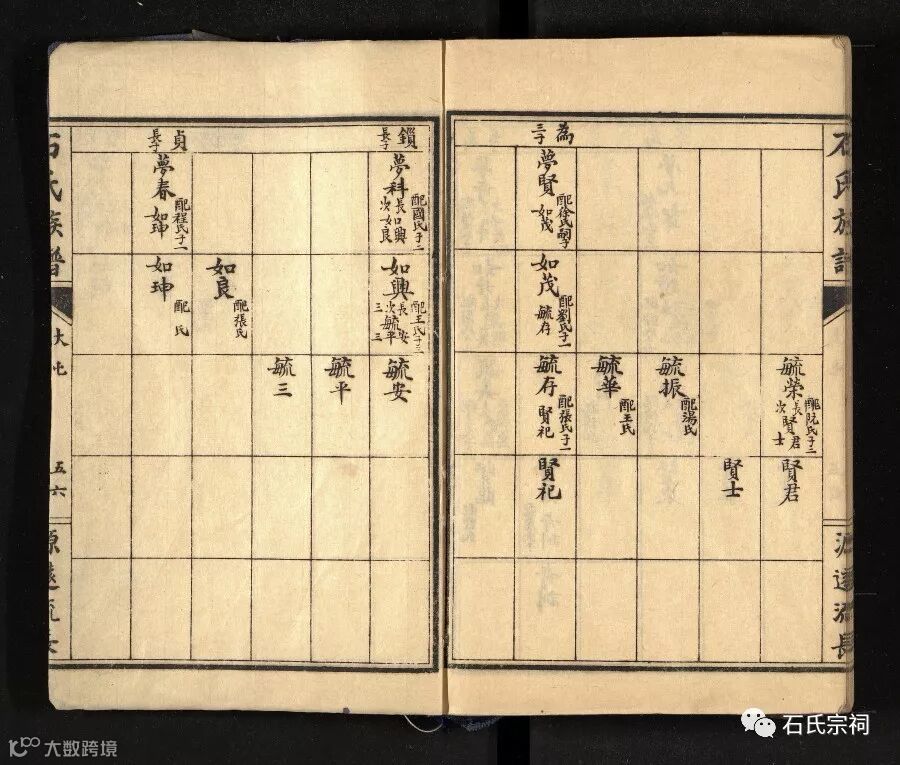 石氏族譜
源遠流長
毓榮 配阮氏子二
長賢君
次賢士
毓振 配湯氏
毓華 配王氏
賢君
賢士
為
三子
夢賢 配徐氏嗣子
如茂
如茂 配劉氏子一
毓存
毓存 配張氏子一
賢祀
賢祀
鎖
長子
夢科 配國氏子二
長如興
次如良
如興 配王氏子三
長毓安
次毓平
三毓三
如良 配張氏
毓安
毓平
毓三
貞
長子
夢春 配程氏子一
如珅
如珅 配 氏
石氏族譜
五六
源遠流長
石氏宗祠
大数跨境